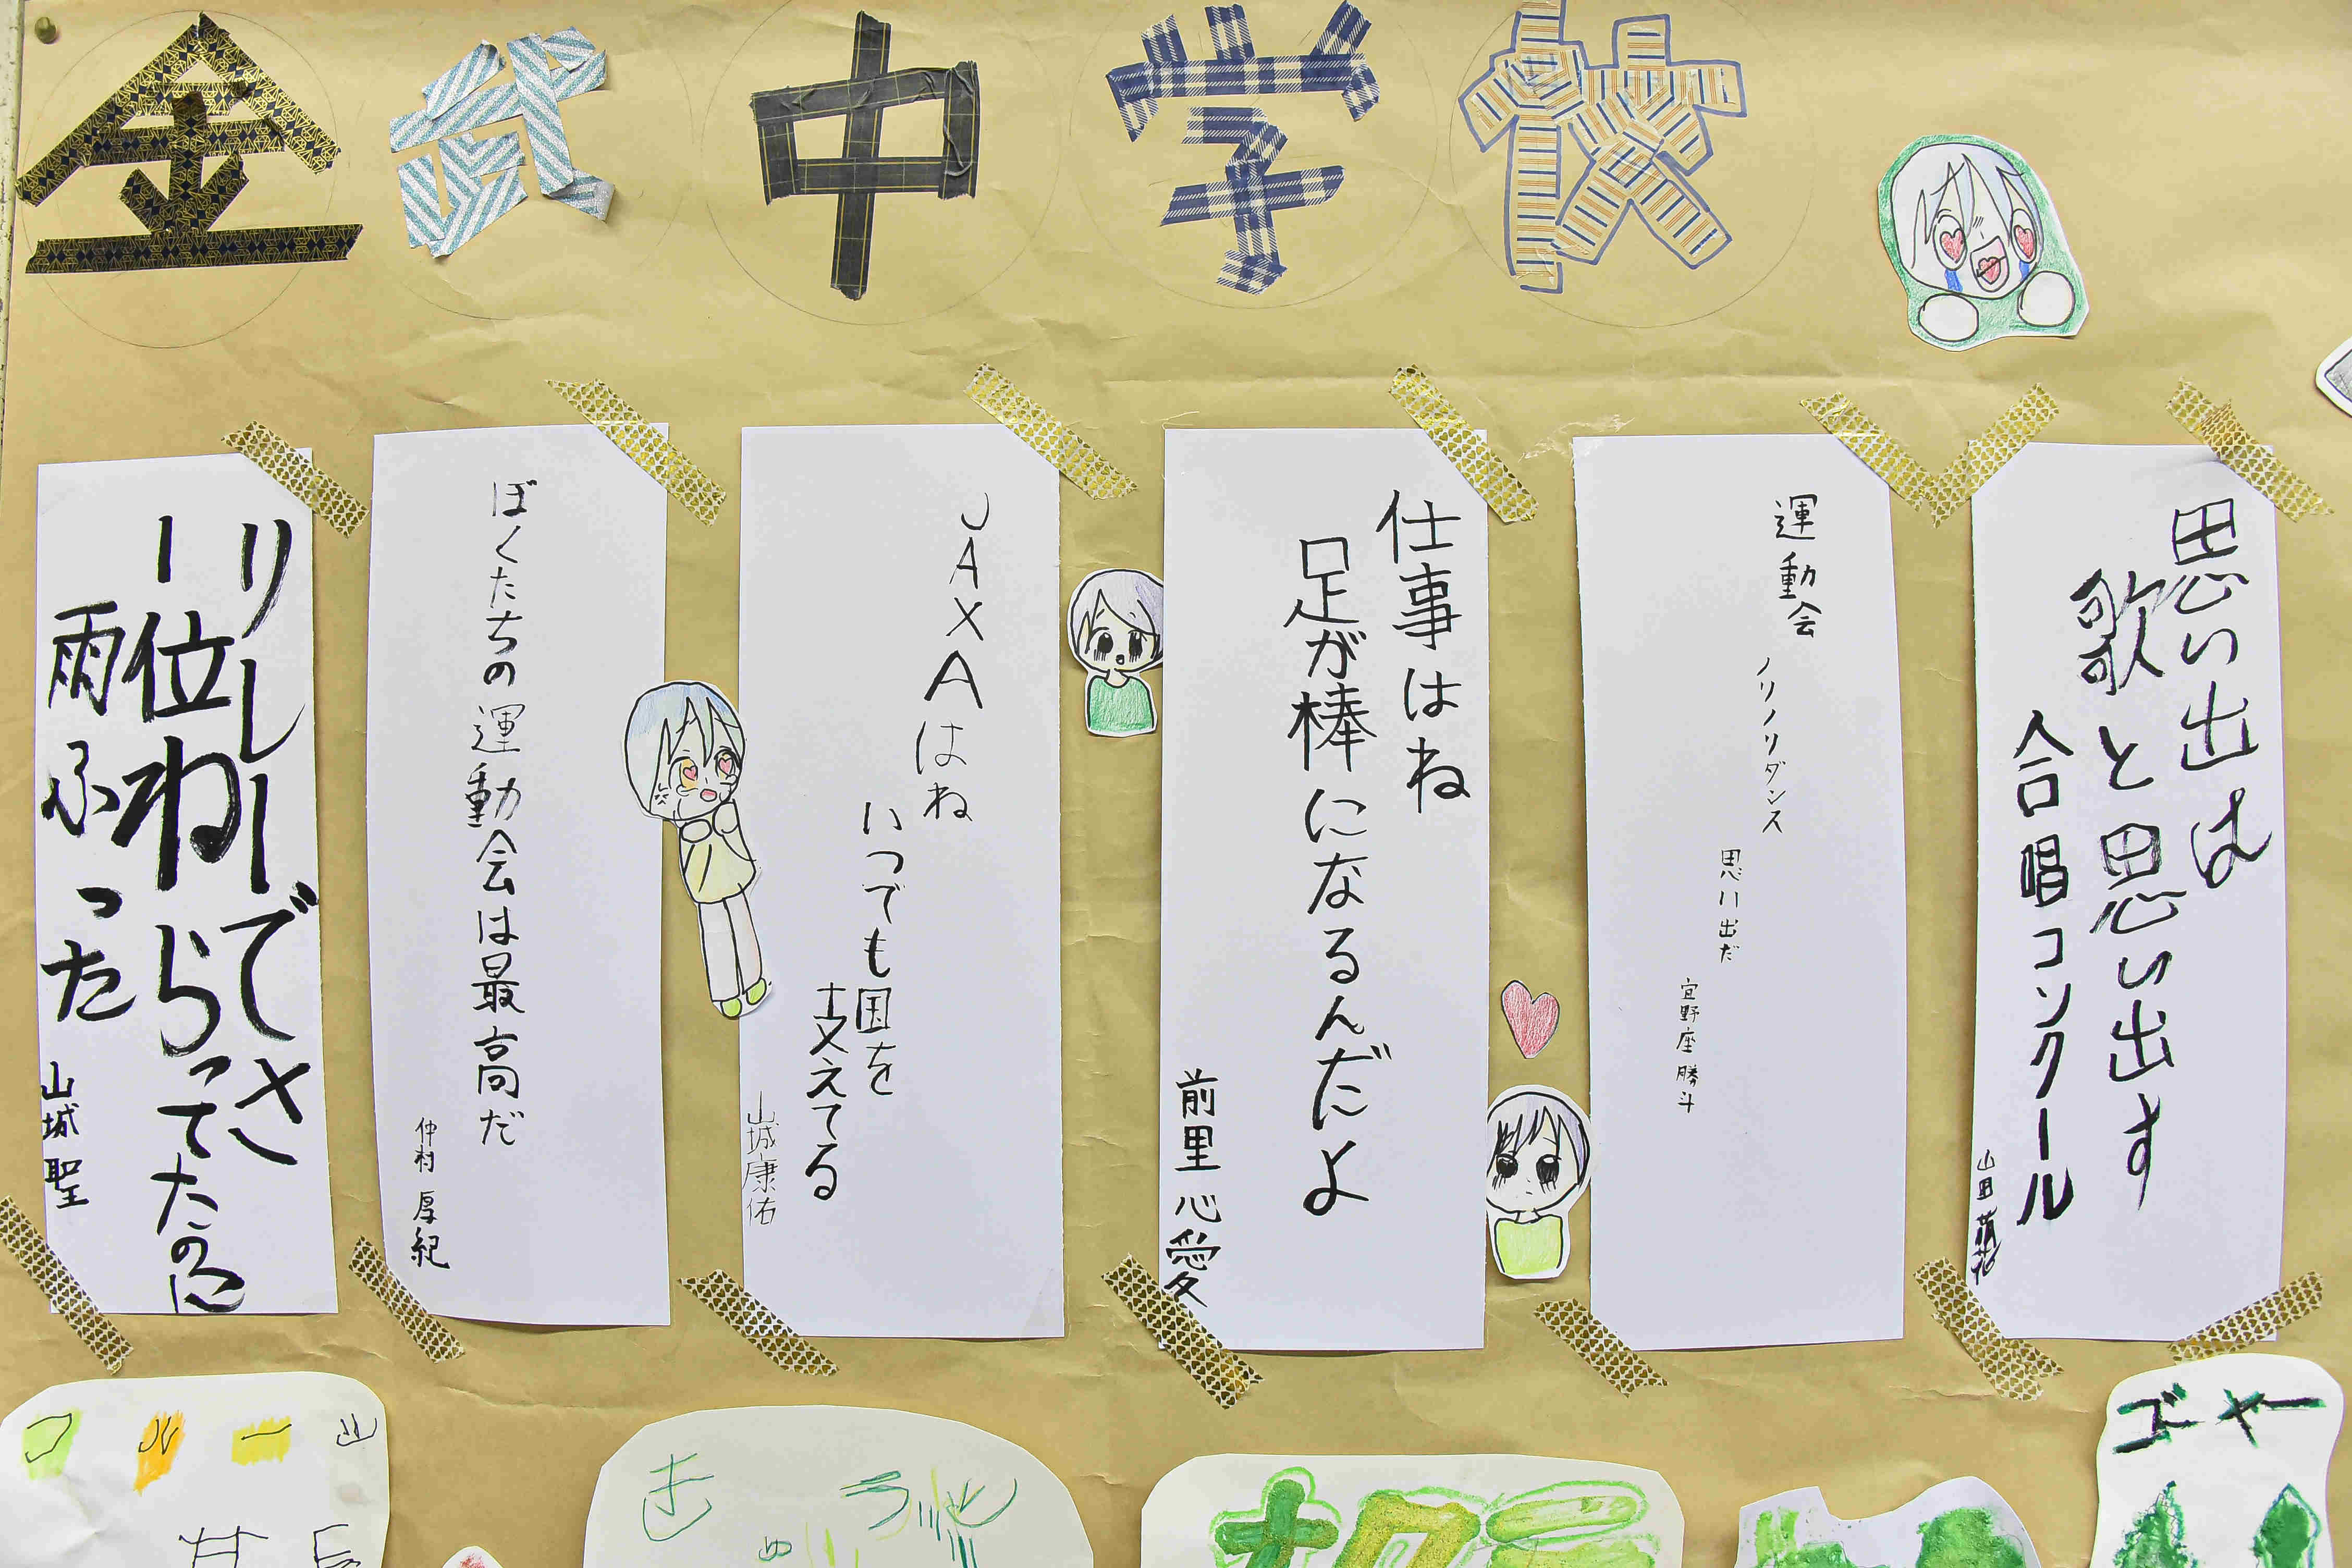 金武中学校
思い出は
歌と思い出す
合唱コンクール
山田
運動会
ノリノリダンス
思い出だ
宜野座 勝斗
仕事はね
足が棒になるんだよ
前里 心愛
JAXAはね
いつでも国を
支えてる
山城康佑
ぼくたちの運動会は最高だ
仲村 厚紀
リレーでさ
一位ねらってたのに
雨ふった
山城 聖
ゴーヤー